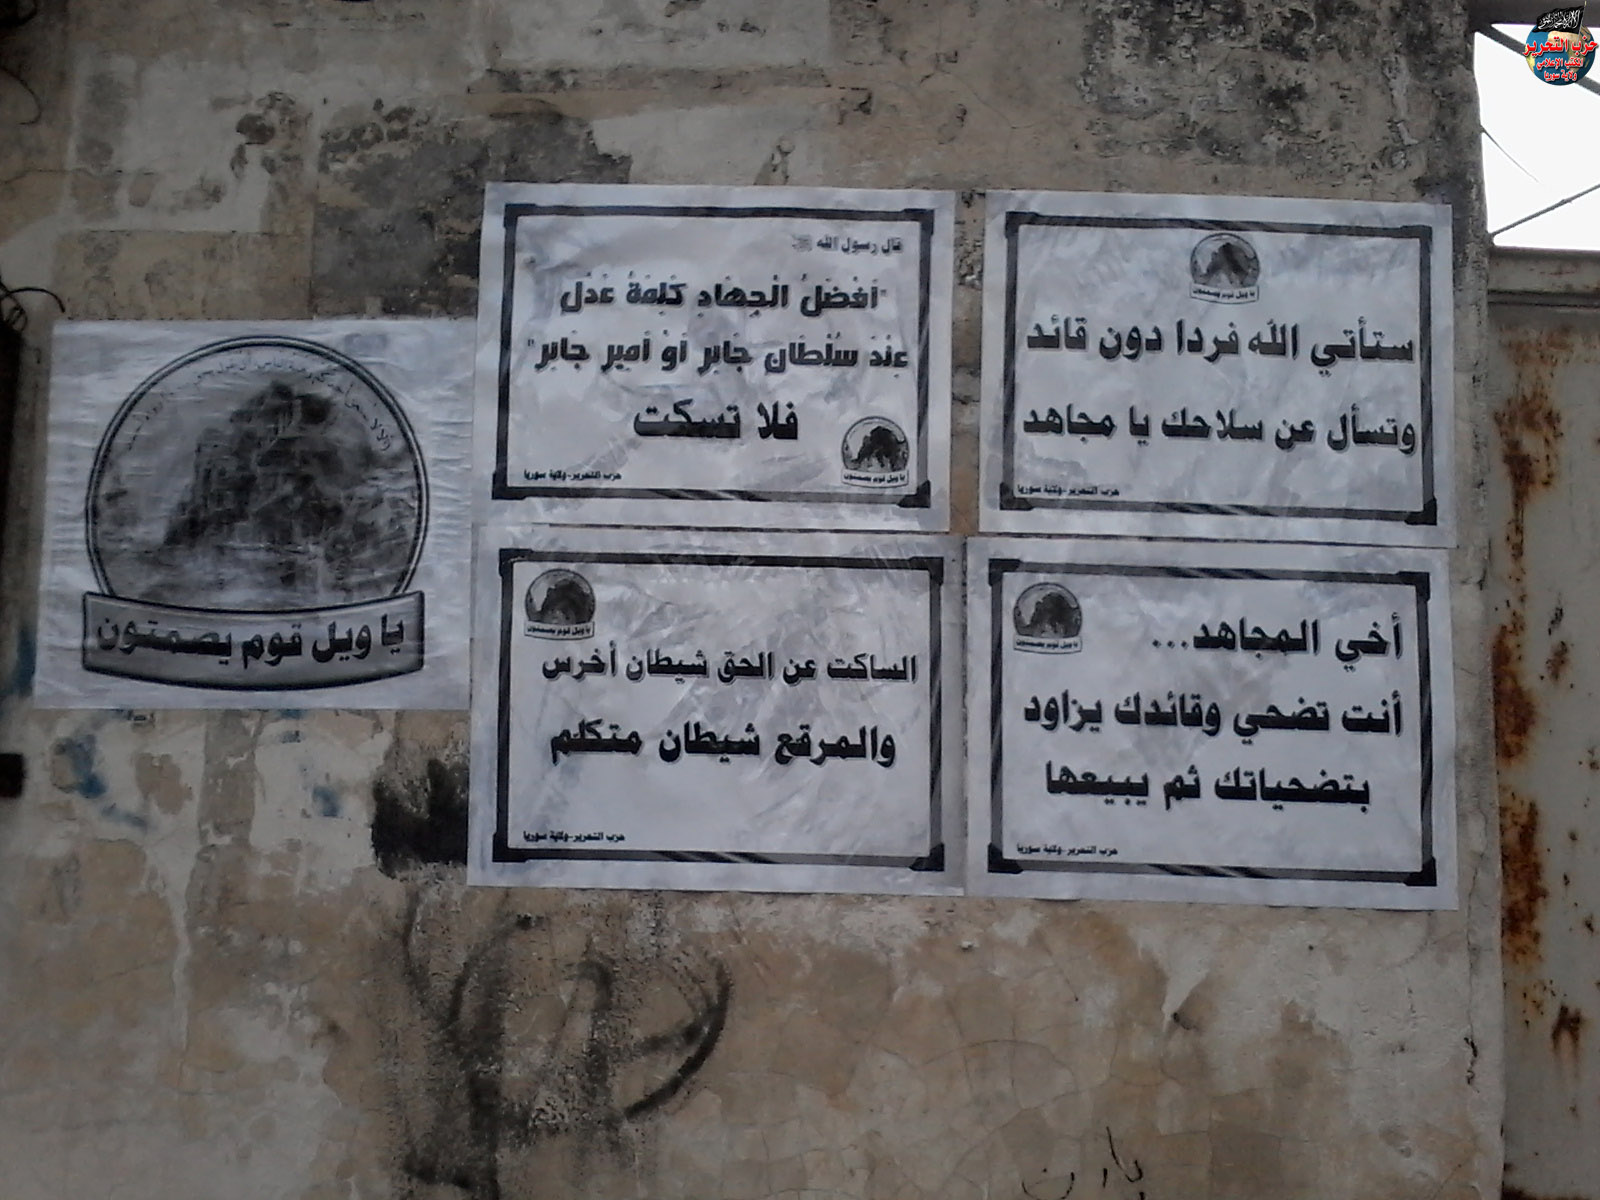 حزب التحرير
المكتب الإعلامي
ولاية سوريا
ستأتي الله فردا دون قائد
وتسأل عن سلاحك يا مجاهد
حزب التحرير-ولاية سوريا
يا ويل قوم يصمتون
قال رسول الله ﷺ
"أَفْضَلُ الْجِهَادِ كَلِمَةُ عَدْلٍ
عِنْدَ سُلْطَانٍ جَائِرٍ أَوْ أَمِيرٍ جَائِرٍ"
فلا تسكت
يا ويل قوم يصمتون
حزب التحرير-ولاية سوريا
يا ويل قوم يصمتون
أخي المجاهد...
أنت تضحي وقائدك يزاود
بتضحياتك ثم يبيعها
يا ويل قوم يصمتون
حزب التحرير-ولاية سوريا
الساكت عن الحق شيطان أخرس
والمرقع شيطان متكلم
يا ويل قوم يصمتون
حزب التحرير-ولاية سوريا
يا ويل قوم يصمتون